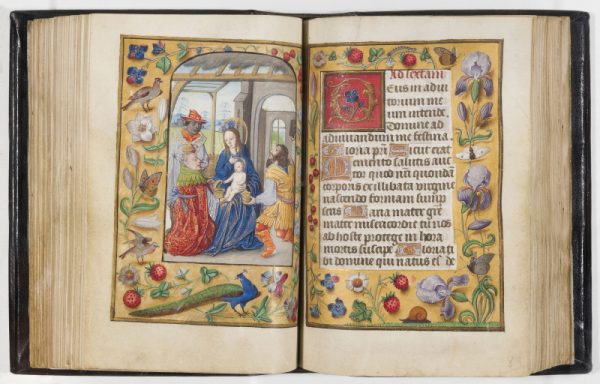 Ad sextam
Deus in adiu
torium me
um intende.
Domine ad
adiuuandum me festina.
Gloria pri Sicut erat
Memento salutis auc
tor quod nri quonda
corporis ex illibata virgine
nascendo formam sump
seris Maria mater gre
mater misericordie tu nos
ab hoste protege in hora
mortis suscipe Gloria ti
bi domine qui natus es de